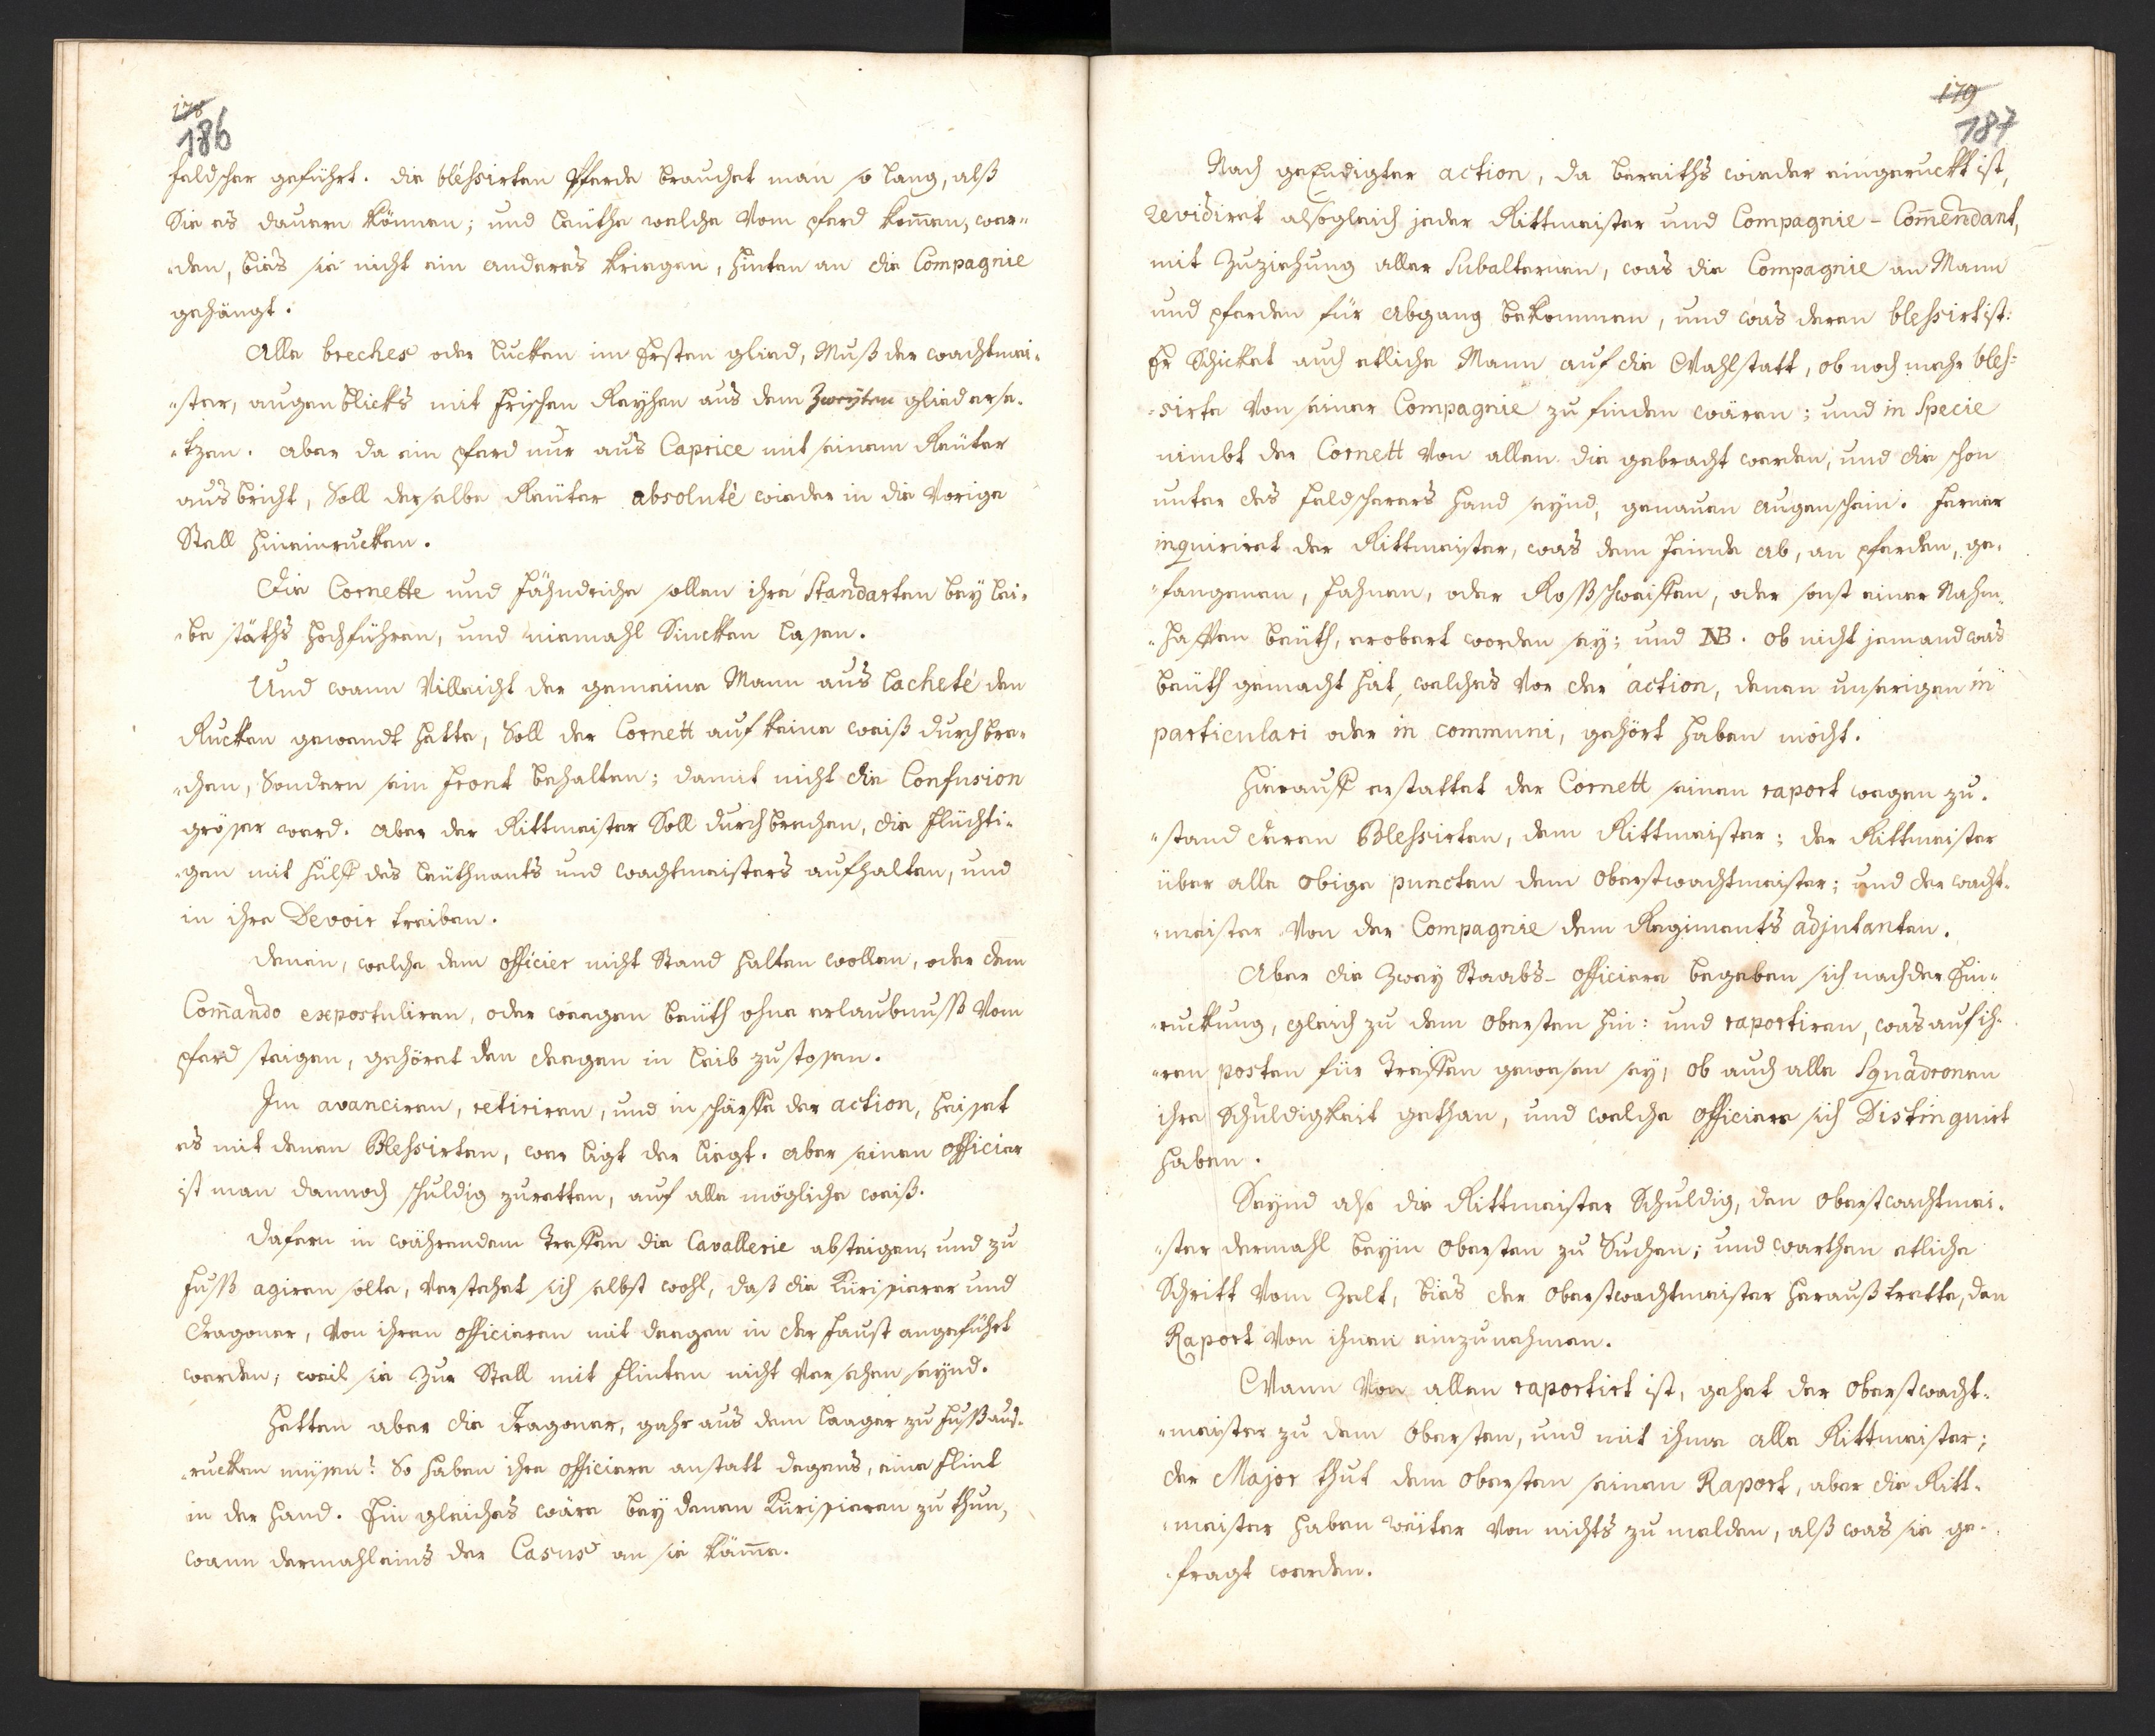 178
186
feldscher geführt. die bléssirten Pferde brauchet man so lang, alß
Sie es dauern können; und leüthe welche Vom pferd kom̄en, wer-
-den, bies sie nicht ein anderes kriegen, hinten an die Compagnie
gehängt.
Alle breches oder lucken im Ersten glied, Muß der wachtmei-
-ster, augenblicks mit frischen Reyhen aus dem Zweÿten glied erse-
-tzen. aber da ein pferd nur aus Caprice mit seinem Reüter
ausbricht, Soll derselbe Reüter absoluté wieder in die Vorige
Stell hineinrucken.
Die Cornette und fähndriche sollen ihre Standarten bey lei-
-be stäths hochführen, und niemahl Sincken lasen.
Und wann Villeicht der gemeine Mann aus lacheté den
Rucken gewendt hette, Soll der Cornett auf keine weiß durchbre-
-chen, Sondern sein front behalten; damit nicht die Confusion
gröser werd. aber der Rittmeister Soll durchbrechen, die flüchti-
-gen mit hülff des leüthnants und wachtmeisters aufhalten, und
in ihre Devoir treiben.
denen, welche dem officier nicht Stand halten wollen, oder dem
Com̄ando expostuliren, oder weegen beüth ohne erlaubnuss Vom
pferd steigen, gehöret den deegen in leib zustosen.
Im avanciren, retiriren, und in schärffe der action, heiset
es mit denen Blessirten, wer ligt der liegt. aber einen officier
ist man dannoch schuldig zuretten, auf alle mögliche weiß.
dafern in währendem Treffen die Cavallerie absteigen, und zu
fuss agiren solte, verstehet sich selbst wohl, daß die Kürisierer und
Dragoner, Von ihren officieren mit deegen in der faust angeführt
werden; weil sie Zur Stell mit flinten nicht Versehen seynd.
hetten aber die Dragoner, gahr aus dem laager zu fuss aus-
-rucken müsen? So haben ihre officiere anstatt degens, eine flint
in der hand. Ein gleiches wäre bey denen Kürisieren zu thun,
wann dermahleins der Casus an sie käm̄e.
179
187
Nach geEndigter action, da bereiths wieder eingeruckt ist,
revidiret alsogleich jeder Rittmeister und Compagnie - Com̄endant,
mit Zuziehung aller Subalternen, was die Compagnie an Mann
und pferden für abgang bekommen, und was deren blessirt ist:
Er Schicket auch etliche Mann auf die Wahlstatt, ob noch mehr bles-
-sirte Von seiner Compagnie zu finden wären; und in Specie
nimbt der Cornett Von allen die gebracht werden, und die schon
unter des feldscherers hand seynd, genauen augenschein. ferner
inquiriret der Rittmeister, was dem feinde ab, an pferden, ge-
-fangenen, fahnen, oder Rossschweiffen, oder sonst einer Nahm-
-hafften beüth, erobert worden sey; und NB. ob nicht jemand was
beüth gemacht hat, welches Vor der action, denen unserigen in
particulari oder in communi, gehört haben möcht.
hierauff erstattet der Cornett seinen raport wegen zu-
-stand deren Blessirten, dem Rittmeister; der Rittmeister
über alle obige puncten dem oberstwachtmeister; und der wacht-
-meister Von der Compagnie dem Regiments adjutanten.
Aber die Zwey Staabs- officiere begeben sich nach der Ein-
-ruckung, gleich zu dem obersten hin: und raportiren, was auf ih-
-ren posten für Treffen gewesen sey, ob auch alle Squadronen
ihre Schuldigkeit gethan, und welche officiere sich Distinguirt
haben.
Seynd also die Rittmeister Schuldig, den oberstwachtmei-
-ster dermahl beym obersten zu Suchen; und warthen etliche
Schritt Vom Zelt, bies der oberstwachtmeister heraußtrette, den
Raport Von ihnen einzunehmen.
Wann Von allen raportirt ist, gehet der oberstwacht-
-meister zu dem obersten, und mit ihme alle Rittmeister;
der Major thut dem obersten seinen Raport, aber die Ritt-
-meister haben weiter Von nichts zu melden, alß was sie ge-
-fragt werden.